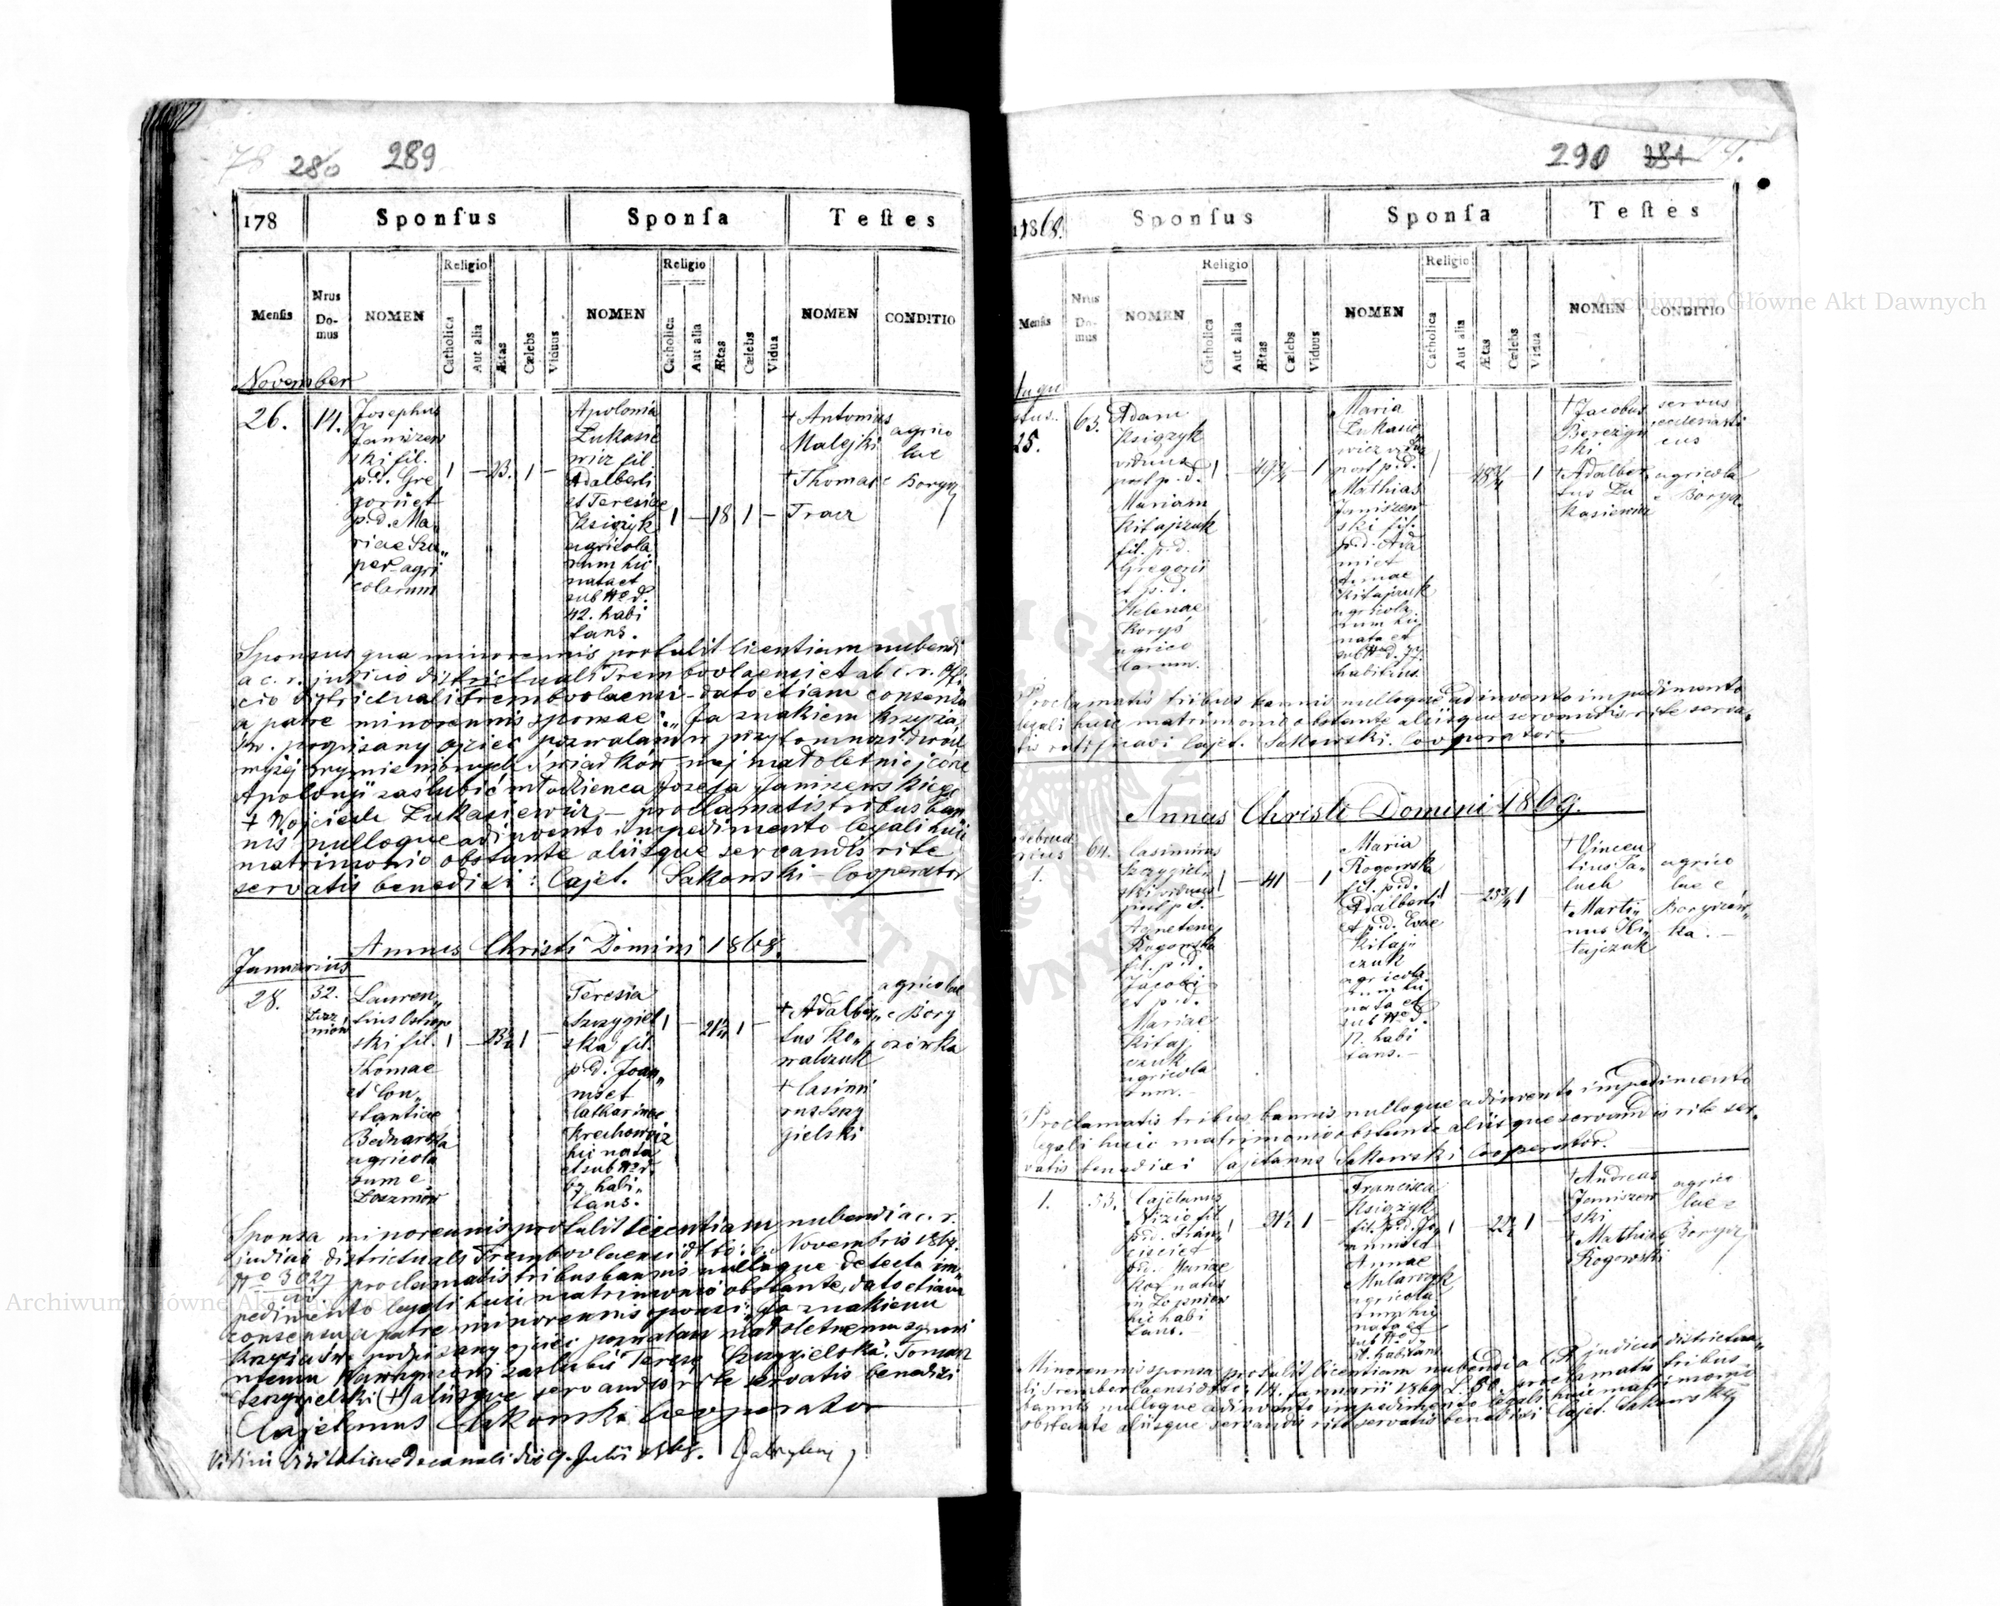 289
178
Sponſus
Sponſa
Teſtes
Menſis
Nrus Domus
NOMEN
Religio
Catholica
Aut alia
Ætas
Cælebs
Viduus
NOMEN
Religio
Catholica
Aut alia
Ætas
Cælebs
Vidua
NOMEN
CONDITIO
November
26.
14.
Josephus
Janiszew
ski fil.
p.d. Gre
gorii et
p.d. Ma
riae Szu„
per agri
colarum
1 – 23. 1 –
Apolonia
Łukasie
wicz fil
Adalberti
et Teresiae
Księżyk
agricola
rum hic
nata et
sub Nro d.
42. habi
tans.
1 – 18 1 –
+ Antonius
Malejki
+ Thomas
Tracz
agrico
lae
e Boryc
Sponsus qua minorennis protulit licentiam nubendi
a c. r. judicio districtuali Trembovlaensi et ab c. r. offi
cio districtuali Trembovlaensi – dato etiam consensu
a patre minorennis sponsae: „Ja znakiem krzyża
św. podpisany ojciec pozwalam w przytomności dwóch
wyżej wymienionych świadków mej małoletniej córce
Apolonii zaślubić młodzieńca Józefa Janiszewskiego
+ Wojciech Łukasiewicz – proclamatis tribus ban
nis nulloque adinvento impedimento legali huic
matrimonio obstante aliisque servandis rite
servatis benedixi: Cajet. Sakowski Cooperator
Annus Christi Domini 1868.
Januarius
28.
32.
Lauren„
tius Ostrow
ski fil.
Thomae
et Con„
stantiae
Bednarska
agricola
rum e
1 – 23½ 1 –
Teresia
Szczygiel
ska fil.
p.d. Joan„
nis et
Catharinae
Krechowicz
hic nata
et sub Nro d
67 habi„
tans.
1 – 21¼ 1 –
+ Adalber„
tus Ko„
walczuk
+ Casimi
rus Szczy
gielski
agricolae
e Bory
czówka
Sponsa minorennis protulit licentiam nubendi a c. r.
judicio districtuali Trembovlaensi ddto: 6. Novembris 1867.
No 3027 proclamatis tribus bannis nulloque detecto im„
pedimento legali huic matrimonio obstante, dato etiam
consensu a patre minorennis sponsi: Ja znakiem
krzyża św. podpisany ojciec pozwalam małoletniemu synowi
memu Wawrzyńcowi zaślubić Teresę Szczygielską. Tomasz
(+) aliisque servandis rite servatis benedixi
Cajetanus Sakowski Cooperator
Vidi in Visitatione Decanali die 9. Julii 1868.
290
1868.
Sponſus
Sponſa
Teſtes
Menſis
Nrus Domus
NOMEN
Religio
Catholica
Aut alia
Ætas
Cælebs
Viduus
NOMEN
Religio
Catholica
Aut alia
Ætas
Cælebs
Vidua
NOMEN
CONDITIO
Augu
stus.
25.
63.
Adam
Księżyk
viduus
post p.d.
Mariam
Kitajczuk
fil. p.d.
Gregorii
et p.d.
Helenae
Koryś
agrico
larum.
1 – 49¾ – 1
Maria
Łukasie
wicz vidua
post p.d.
Mathias
Janiszew
ski fil.
p.d. Ada
mi et
Annae
Kitajczuk
agricola
rum hic
nata et
sub Nro d. 77.
habitans.
1 – 48¾ – 1
+ Jacobus
Berezow
ski
+ Adalber
tus Łu
kasiewicz
servus
ecclesiasti
cus
agricola
e Boryc.
Proclamatis tribus bannis nulloque adinvento impedimento
legali huic matrimonio obstante aliisque servandis rite serva„
tis ratificavi Cajet. Sakowski. Cooperator.
Annus Christi Domini 1869.
Februa
rius
1.
64.
Casimirus
Szczygiel„
ski viduus
post p.d.
Agnetem
Rogowska
fil. p.d.
Jacobi
et p.d.
Mariae
Kitaj
czuk
agricola
rum.
1 – 41 – 1
Maria
Rogowska
fil. p.d.
Adalberti
et p.d. Evae
Kitaj„
czuk
agricola
rum hic
nata et
sub Nro d.
12. habi
tans.
1 – 23¾ 1
+ Vincen
tius Pa„
luch
+ Marti„
nus Ki„
tajczuk
agrico
lae e
Boryczów„
ka.
Proclamatis tribus bannis nulloque adinvento impedimento
legali huic matrimonio obstante aliisque servandis rite ser„
vatis benedixi Cajetanus Sakowski Cooperator.
1.
53.
Cajetanus
Nizio fil
p.d. Fran„
cisci et
p.d. Mariae
Kot natus
hic habi
tans.
1 – 31½ 1 –
Francisca
Księżyk
fil. p.d. Jo„
annis et
Annae
Mularczyk
agricola
rum hic
nata et
sub Nro d.
habitans
1 – 22½ 1 –
+ Andreas
Janiszew
ski
+ Mathias
Rogowski
agrico
lae e
Boryc
Minorennis sponsa protulit licentiam nubendi a CR judicio districtua„
li Trembovlaensi ddto: 14. Januarii 1869 L. 80. proclamatis tribus
bannis nulloque adinvento impedimento legali huic matrimonio
obstante aliisque servandis rite servatis benedixi Cajet. Sakowski
Archiwum Główne Akt Dawnych
Archiwum Główne Akt Dawnych